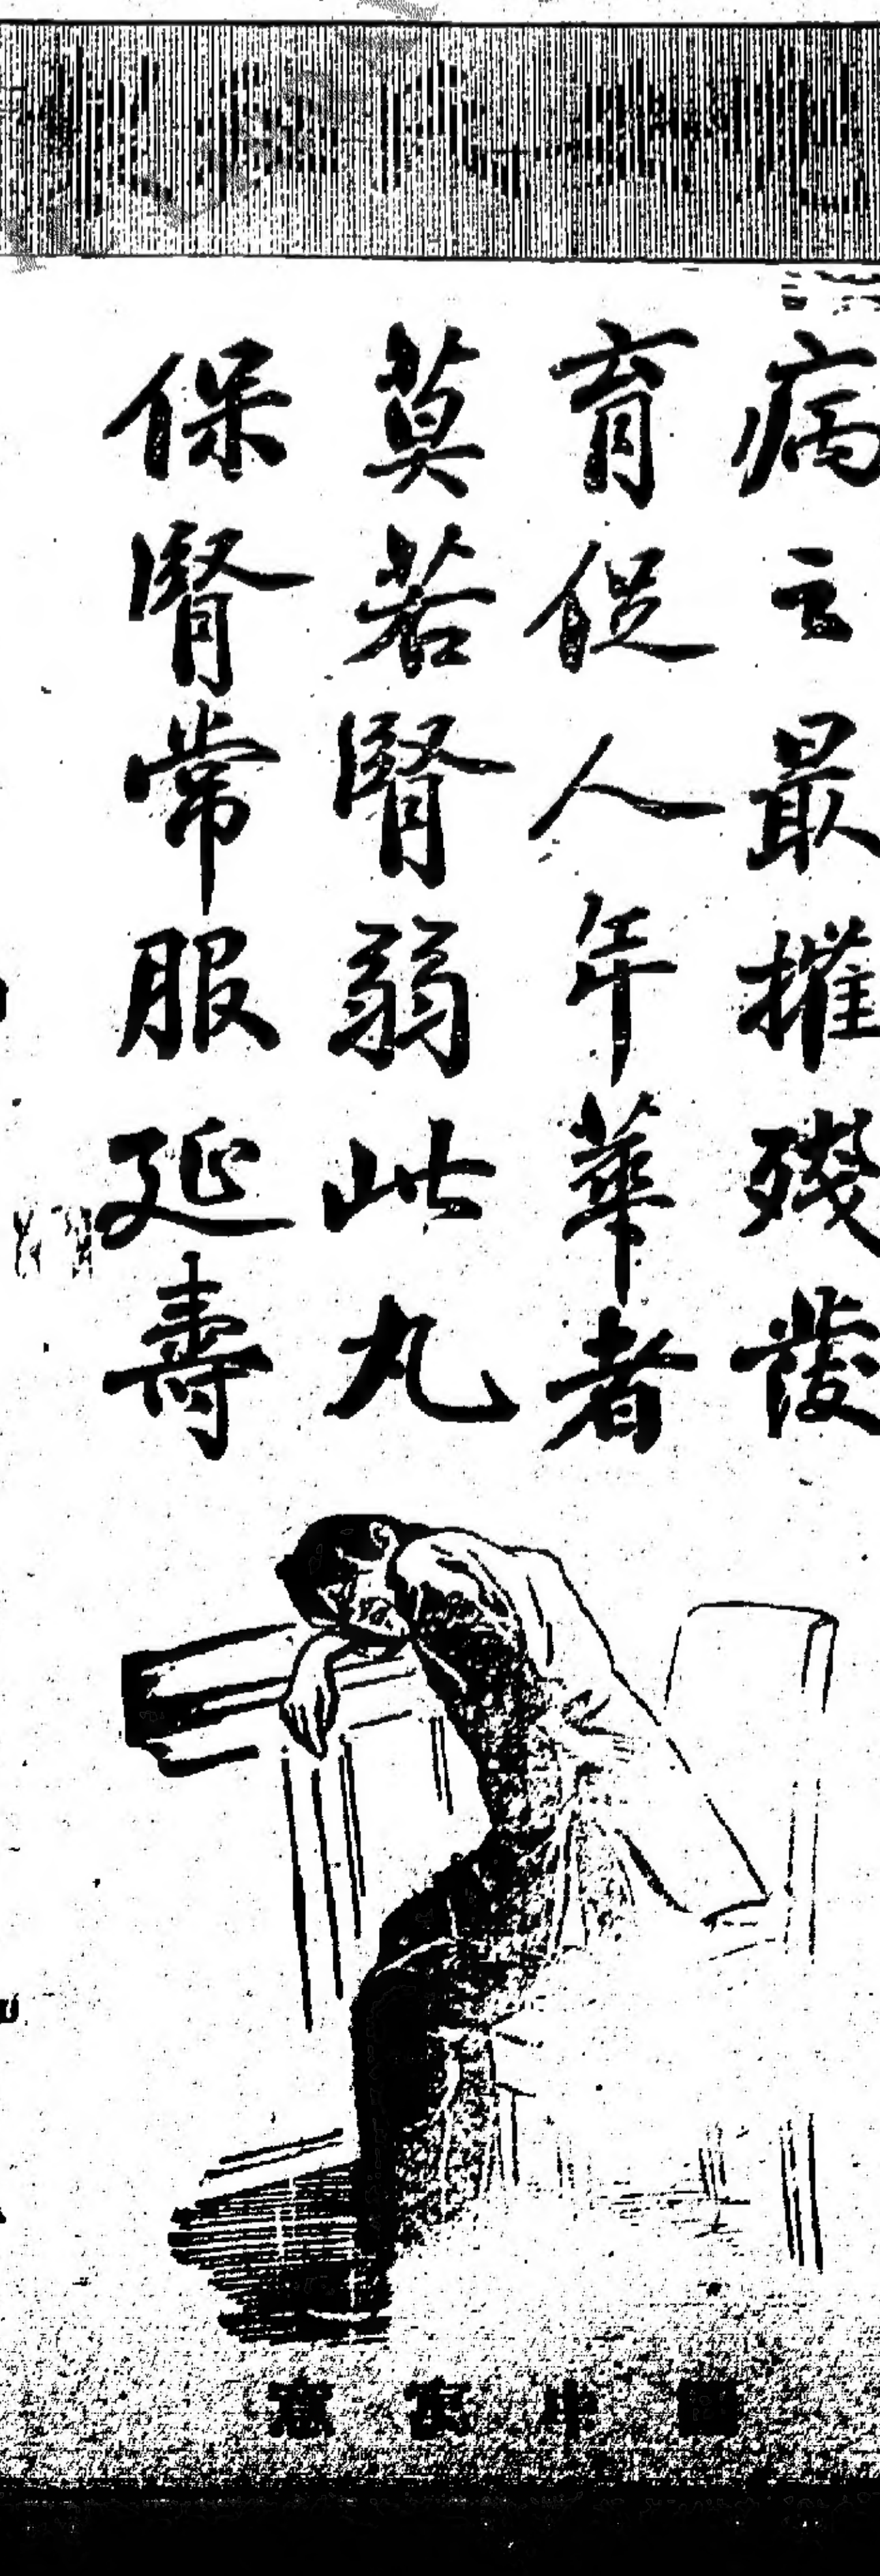 病之最摧殘發
育促人年華者
莫若腎弱此丸
保腎常服延壽